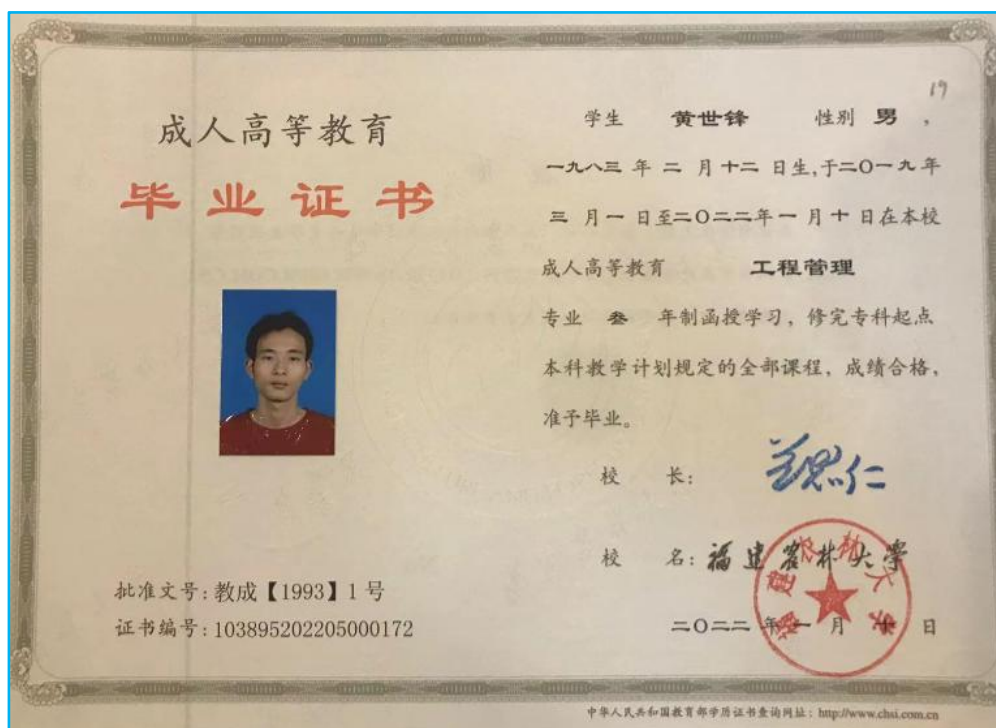 19
成人高等教育
毕业证书
批准文号:教成【1993】1号
证书编号:103895202205000172
学生 黄世锋 性别 男,
一九八三年二月十二日生,于二〇一九年
三月一日至二〇二二年一月十日在本校
成人高等教育 工程管理
专业 叁 年制函授学习,修完专科起点
本科教学计划规定的全部课程,成绩合格,
准予毕业。
校 长:
校 名:福建农林大学
福建农林大学
二〇二二年一月十日
中华人民共和国教育部学历证书查询网址:http://www.chsi.com.cn